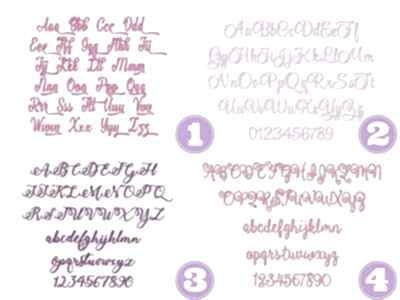 Aaa Bbb Ccc Ddd
Eee Fff Ggg Hhh Iii
Jjj Kkk Lll Mmm
Nnn Ooo Ppp Qqq
Rrr Sss Ttt Uuu Vvv
Www Xxx Yyy Zzz
1
AaBbCcDdEeFf
GgHhIiJjKkLlMm
NnOoPpQqRrSsTt
UuVvWwXxYyZz
0123456789
2
ABCDEFGH
IJKLMNOPQ
RSTUVWXYZ
abcdefghijklmn
opqrstuvwxyz
1234567890
3
ABCDEFGHIJKLMN
OPQRSTUVWXYZ
abcdefghijklmn
opqrstuvwxyz
1234567890
4